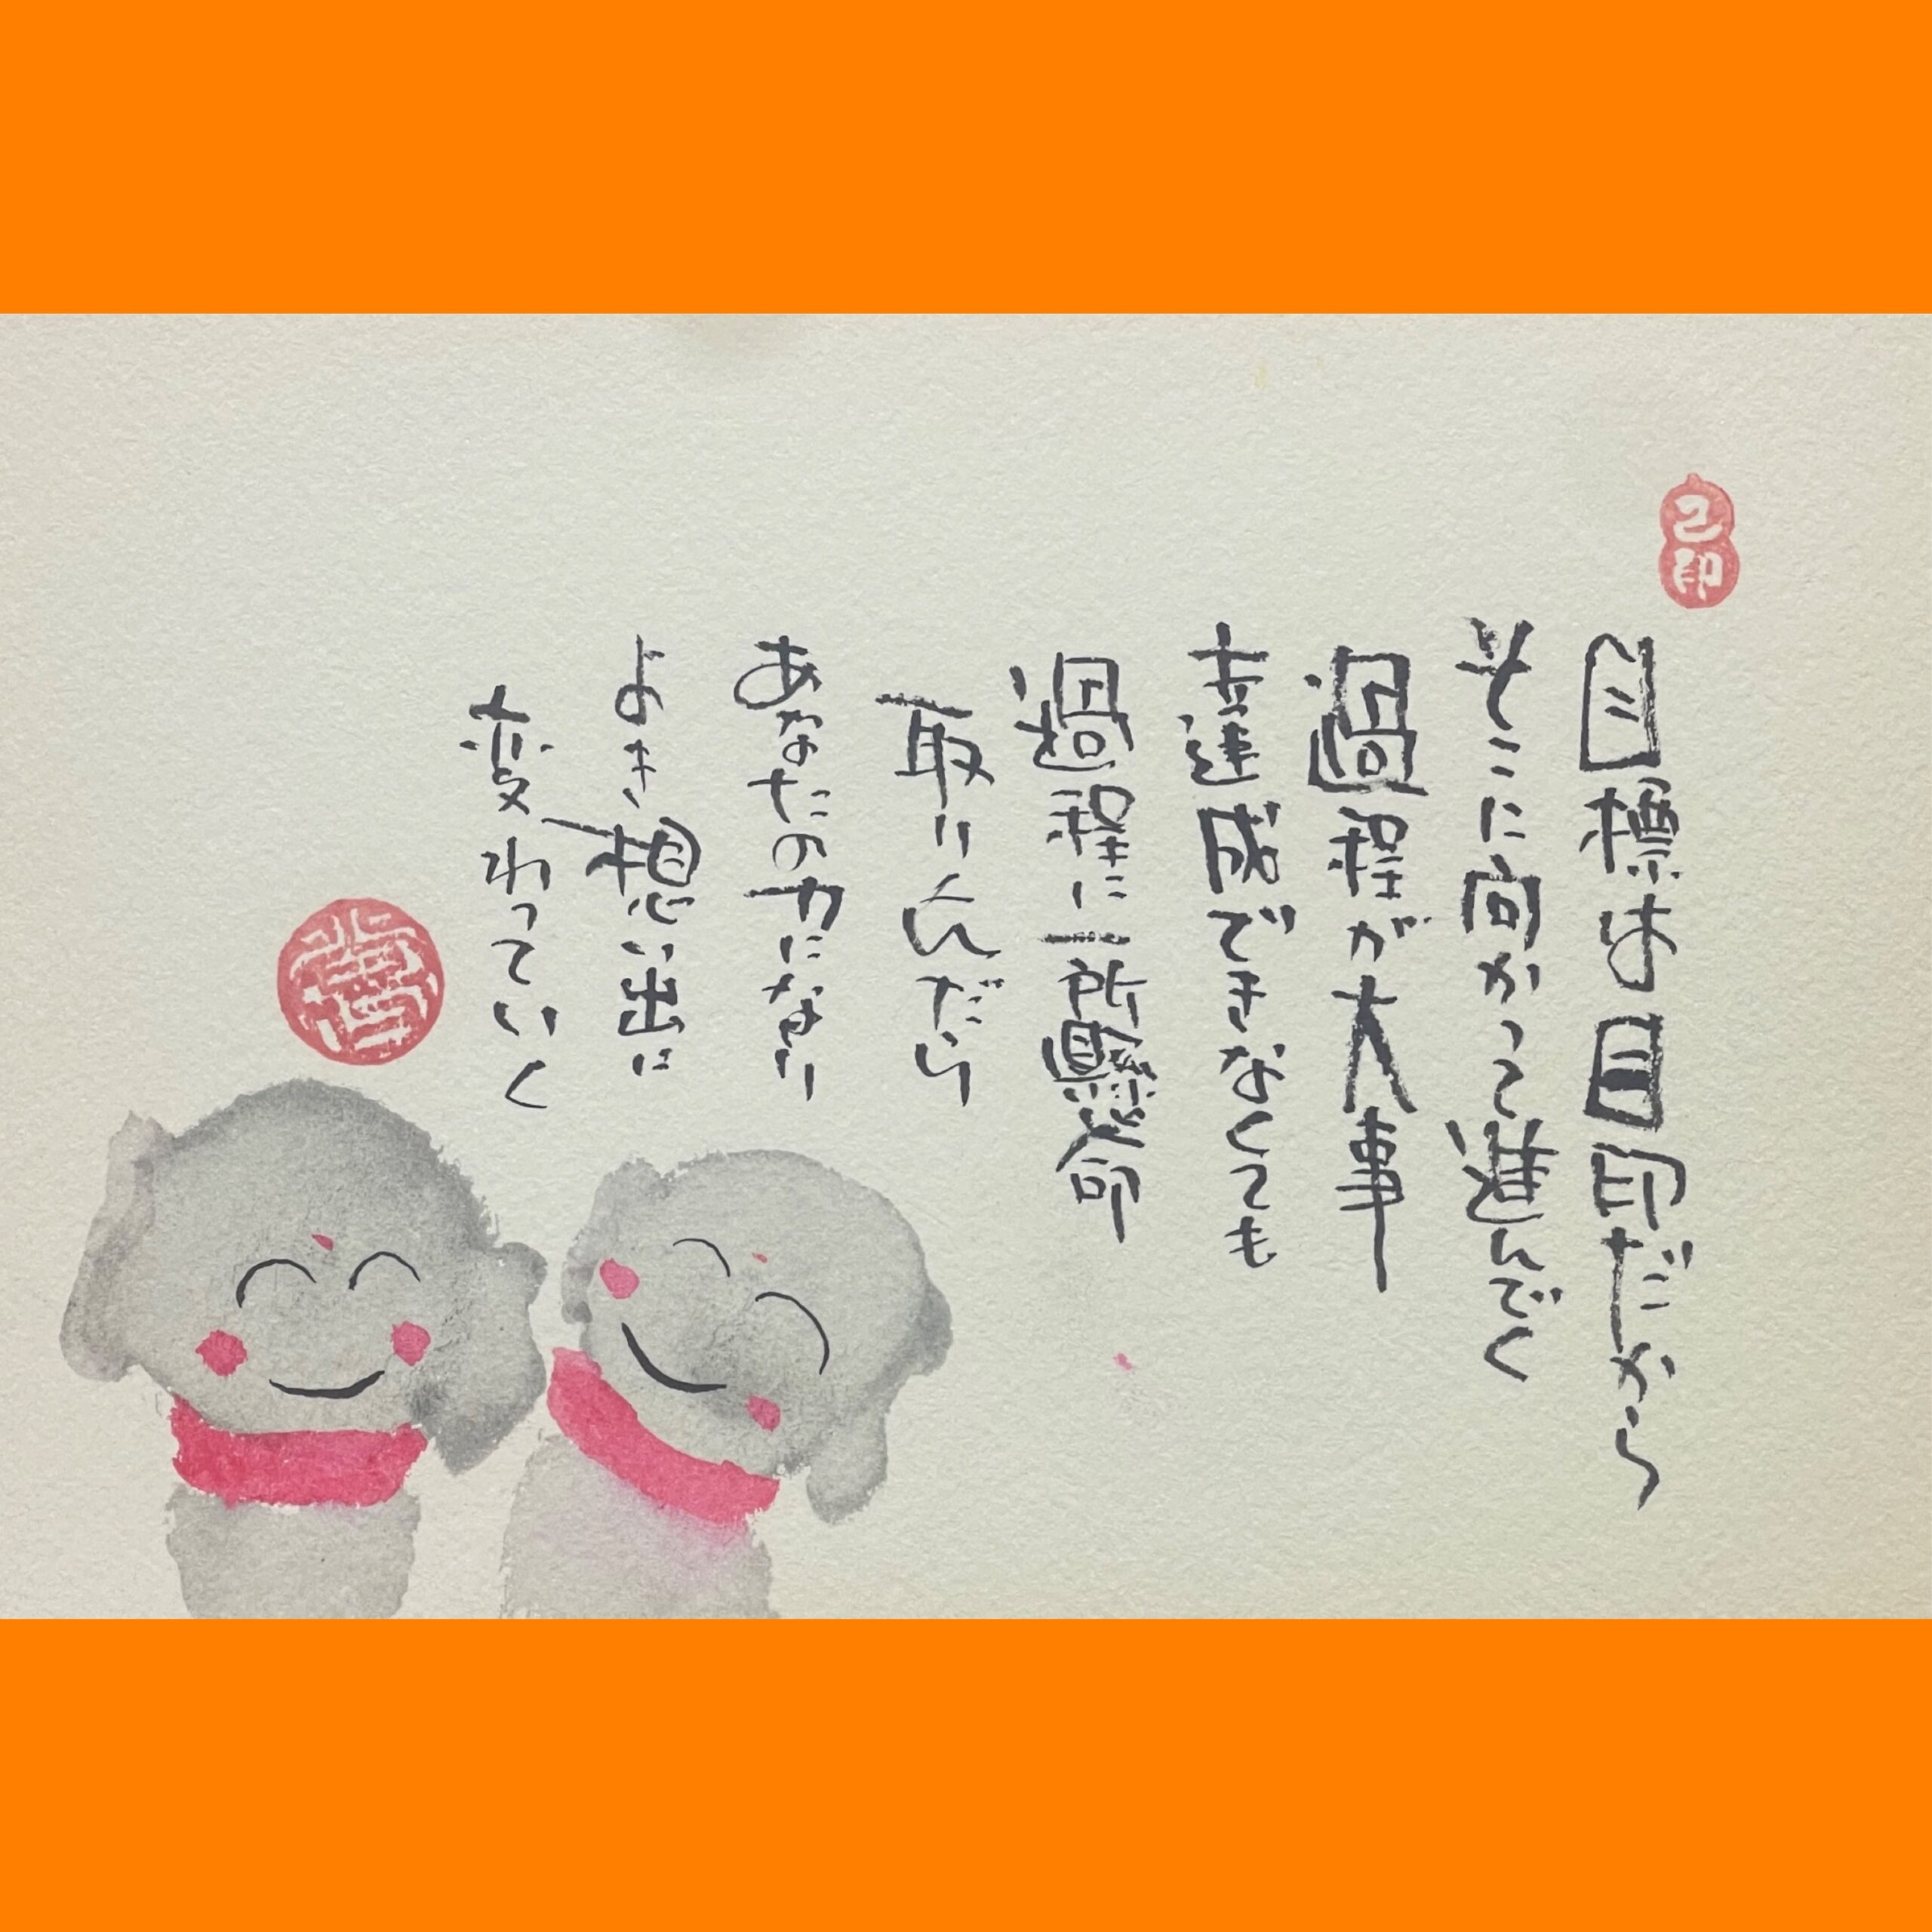 己印
目標は目印だから
そこに向かって進んでく
過程が大事
達成できなくても
過程に一所懸命
取りくんだら
あなたの力になり
よき想い出に
変わっていく